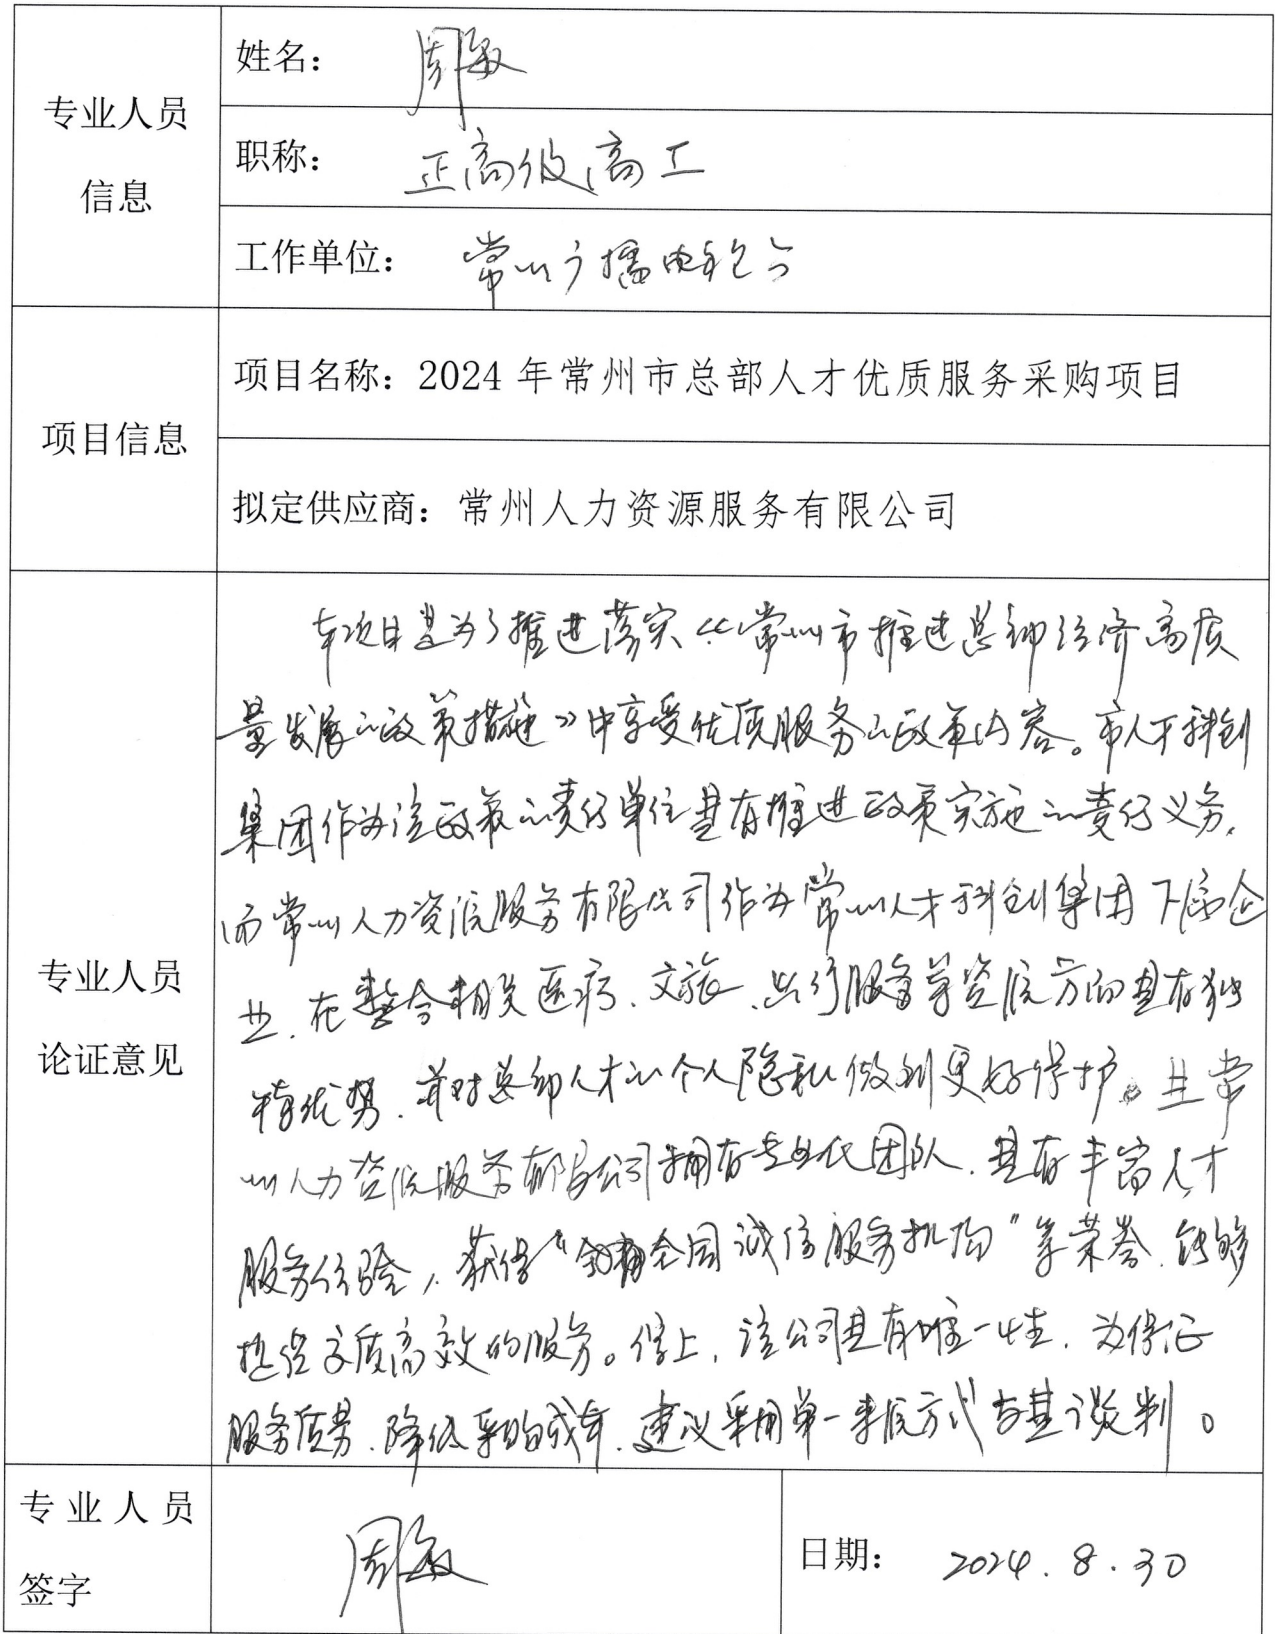 专业人员
信息
姓名：周敏
职称：正高级高工
工作单位：常州广播电视台
项目信息
项目名称：2024 年常州市总部人才优质服务采购项目
拟定供应商：常州人力资源服务有限公司
专业人员
论证意见
本项目是为了推进落实《常州市推进总部经济高质
量发展的政策措施》中享受优质服务的政策内容。市人才科创
集团作为该政策的责任单位具有推进政策实施的责任义务，
而常州人力资源服务有限公司作为常州人才科创集团下属企
业，在整合相关医疗、文旅、出行服务等资源方面具有独
特优势，并对总部人才的个人隐私做到更好保护。且常
州人力资源服务有限公司拥有专业化团队，具有丰富人才
服务经验，获得“全国诚信服务机构”等荣誉，能够
提供优质高效的服务。综上，该公司具有唯一性，为保证
服务质量、降低采购成本，建议采用单一来源方式与其谈判。
专业人员
签字
周敏
日期：2024.8.30